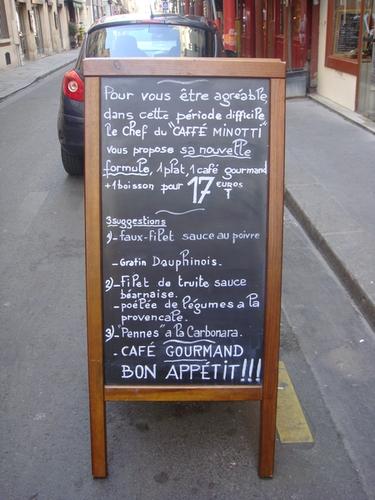 Pour vous être agréable
dans cette période difficile
le Chef du "CAFFÉ MINOTTI"
vous propose sa nouvelle
formule, 1 plat, 1 café gourmand
+1 boisson pour 17 EUROS
3 suggestions
1)- faux-filet sauce au poivre
-Gratin Dauphinois.
2)- filet de truite sauce
béarnaise.
-poêlée de légumes a la
provencale.
3)- "Pennes" a la Carbonara.
- CAFÉ GOURMAND
BON APPÉTIT!!!